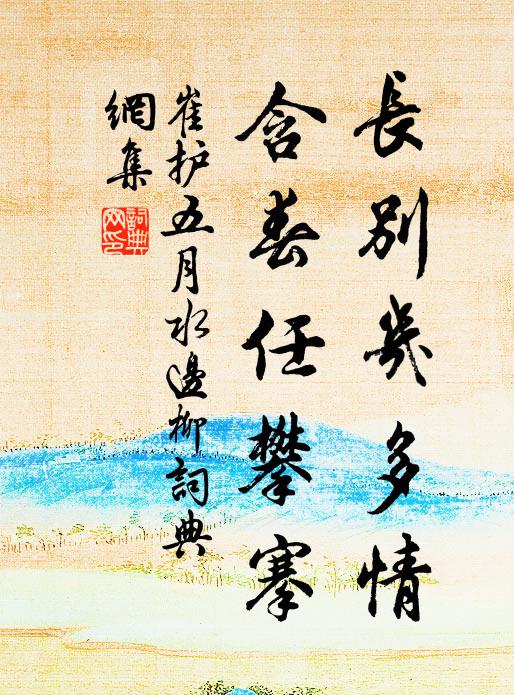 長別幾多情
含春任攀搴
崔护五月水邊柳詞典
網集
詞典
网印